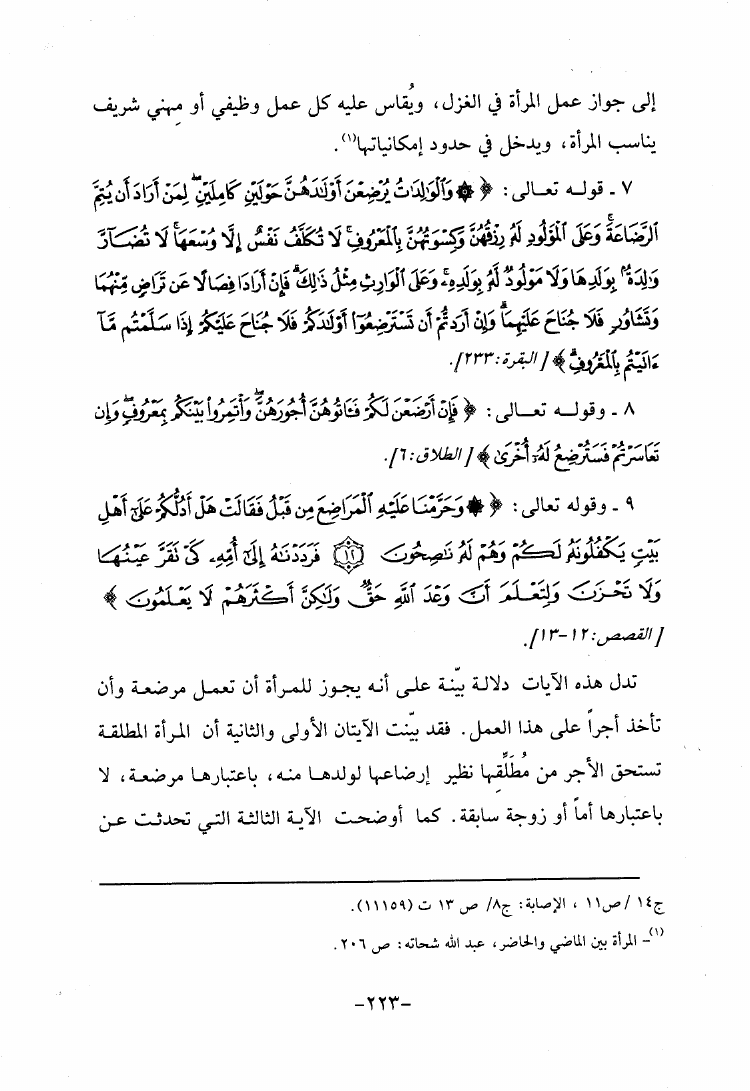 إلى جواز عمل المرأة في الغزل، ويُقاس عليه كل عمل وظيفي أو مِهني شريف
يناسب المرأة، ويدخل في حدود إمكانياتها(١).
٧ ـ قولـه تعـالى: ﴿ ۞ وَٱلْوَٰلِدَٰتُ يُرْضِعْنَ أَوْلَٰدَهُنَّ حَوْلَيْنِ كَامِلَيْنِ ۖ لِمَنْ أَرَادَ أَن يُتِمَّ
ٱلرَّضَاعَةَ ۚ وَعَلَى ٱلْمَوْلُودِ لَهُۥ رِزْقُهُنَّ وَكِسْوَتُهُنَّ بِٱلْمَعْرُوفِ ۚ لَا تُكَلَّفُ نَفْسٌ إِلَّا وُسْعَهَا ۚ لَا تُضَآرَّ
وَٰلِدَةٌۢ بِوَلَدِهَا وَلَا مَوْلُودٌ لَّهُۥ بِوَلَدِهِۦ ۚ وَعَلَى ٱلْوَارِثِ مِثْلُ ذَٰلِكَ ۗ فَإِنْ أَرَادَا فِصَالًا عَن تَرَاضٍ مِّنْهُمَا
وَتَشَاوُرٍ فَلَا جُنَاحَ عَلَيْهِمَا ۗ وَإِنْ أَرَدتُّمْ أَن تَسْتَرْضِعُوٓا۟ أَوْلَٰدَكُمْ فَلَا جُنَاحَ عَلَيْكُمْ إِذَا سَلَّمْتُم مَّآ
ءَاتَيْتُم بِٱلْمَعْرُوفِ ۗ ﴾ [البقرة: ٢٣٣].
٨ ـ وقولـه تعـالى: ﴿ فَإِنْ أَرْضَعْنَ لَكُمْ فَـَٔاتُوهُنَّ أُجُورَهُنَّ ۖ وَأْتَمِرُوا۟ بَيْنَكُم بِمَعْرُوفٍ ۖ وَإِن
تَعَاسَرْتُمْ فَسَتُرْضِعُ لَهُۥٓ أُخْرَىٰ ﴾ [الطلاق: ٦].
٩ ـ وقوله تعالى: ﴿ ۞ وَحَرَّمْنَا عَلَيْهِ ٱلْمَرَاضِعَ مِن قَبْلُ فَقَالَتْ هَلْ أَدُلُّكُمْ عَلَىٰٓ أَهْلِ
بَيْتٍ يَكْفُلُونَهُۥ لَكُمْ وَهُمْ لَهُۥ نَٰصِحُونَ ﴿١٢﴾ فَرَدَدْنَٰهُ إِلَىٰٓ أُمِّهِۦ كَىْ تَقَرَّ عَيْنُهَا
وَلَا تَحْزَنَ وَلِتَعْلَمَ أَنَّ وَعْدَ ٱللَّهِ حَقٌّ وَلَٰكِنَّ أَكْثَرَهُمْ لَا يَعْلَمُونَ ﴾
[القصص: ١٢-١٣].
تدل هذه الآيات دلالة بيّنة على أنه يجوز للمرأة أن تعمل مرضعة وأن
تأخذ أجراً على هذا العمل. فقد بيّنت الآيتان الأولى والثانية أن المرأة المطلقة
تستحق الأجر من مُطَلِّقِها نظير إرضاعها لولدها منه، باعتبارها مرضعة، لا
باعتبارها أماً أو زوجة سابقة. كما أوضحت الآية الثالثة التي تحدثت عن
ج١٤ /ص١١ ، الإصابة: ج٨/ ص ١٣ ت (١١١٥٩).
(١)- المرأة بين الماضي والحاضر، عبد الله شحاته: ص ٢٠٦.
-٢٢٣-